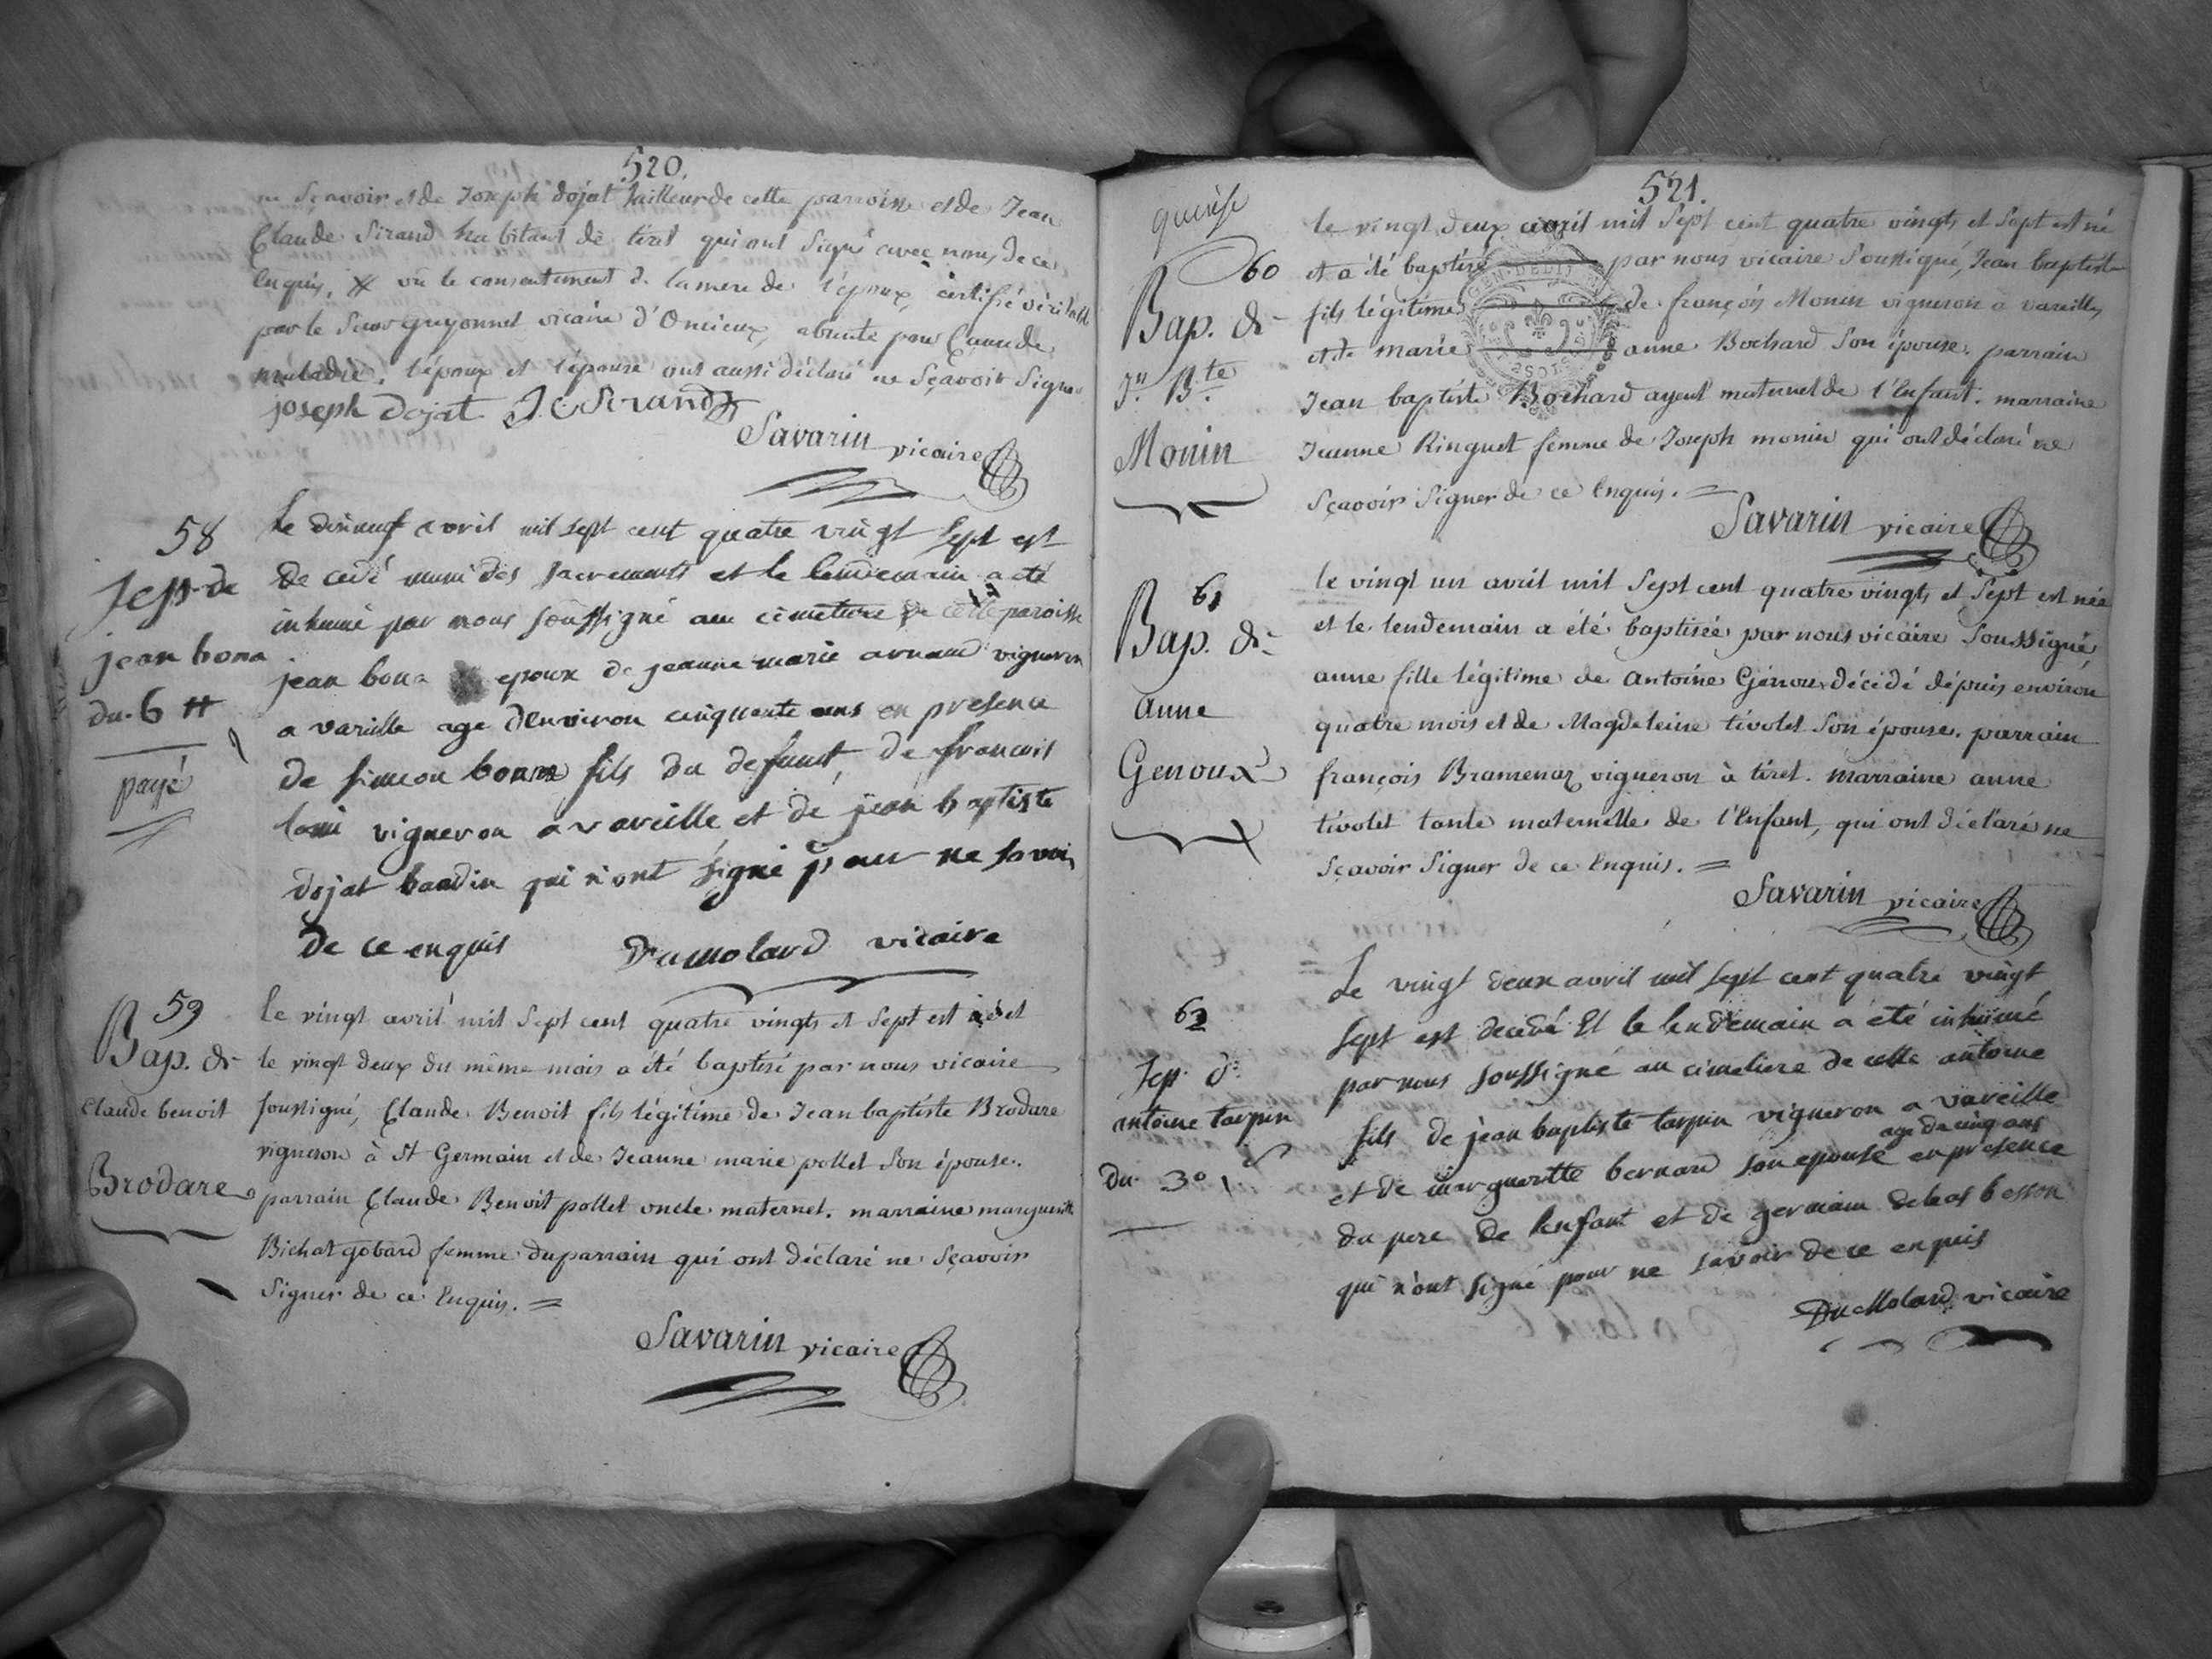 520.
ne sçavoir et de Joseph dojat tailleur de cette parroisse et de Jean
Claude Sirand habitant de tiret qui ont signé avec nous de ce
enquis, vu le consentement de la mere de l'époux, certifié véritable
par le Sieur guyonnet vicaire d'Oncieux, absente pour cause de
maladie. l'époux et l'épouse ont aussi déclaré ne sçavoir signer
joseph dojat J C Sirand
Savarin vicaire
58
Sep. de
jean bona
du 6 ++
payé
Le dixneuf avril mil sept cent quatre vingt sept est
de cedé muni des sacrements et le lendemain a eté
inhumé par nous soussigné au cimetiere de cette paroisse
jean bona epoux de jeanne marie arnaud vigneron
a vareille age denviron cinquante ans en presence
de simeon bona fils du defunt, de francois
vigneron a vareille et de jean baptiste
dojat baudin qui n'ont signé pour ne savoir
de ce enquis Dumolard vicaire
59
Bap. de
Claude benoit
Brodare
le vingt avril mil sept cent quatre vingts et sept est né et
le vingt deux du même mois a été baptisé par nous vicaire
soussigné, Claude Benoit fils légitime de Jean baptiste Brodare
vigneron à St Germain et de Jeanne marie pollet son épouse.
parrain Claude Benoit pollet oncle maternel. marraine marguerite
Bichat gobard femme du parrain qui ont déclaré ne sçavoir
signer de ce enquis. =
Savarin vicaire
521.
60
Bap. de
Jn. Bte.
Monin
le vingt deux avril mil sept cent quatre vingts et sept est né
et a été baptisé par nous vicaire soussigné, Jean baptiste
fils légitime de françois Monin vigneron à vareilles
et de marie anne Bochard son épouse. parrain
Jean baptiste Bochard ayeul maternel de l'enfant. marraine
Jeanne Ringuet femme de Joseph monin qui ont déclaré ne
sçavoir signer de ce enquis. =
Savarin vicaire
61
Bap. de
anne
Genoux
le vingt un avril mil sept cent quatre vingts et sept est née
et le lendemain a été baptisée par nous vicaire soussigné,
anne fille légitime de antoine Génoux décédé dépuis environ
quatre mois et de Magdeleine tivolet son épouse. parrain
françois Bramenaz vigneron à tiret. marraine anne
tivolet tante maternelle de l'enfant, qui ont déclaré ne
sçavoir signer de ce enquis. =
Savarin vicaire
62
Sep. de
antoine tarpin
du 30
Le vingt deux avril mil sept cent quatre vingt
sept est decedé et le lendemain a été inhumé
par nous soussigné au cimetiere de cette antoine
fils de jean baptiste tarpin vigneron a vareille
age de cinq ans
et de margueritte bernard son epouse en presence
du pere de lenfant et de germain besson
qui n'ont signé pour ne savoir de ce enquis
DuMolard vicaire